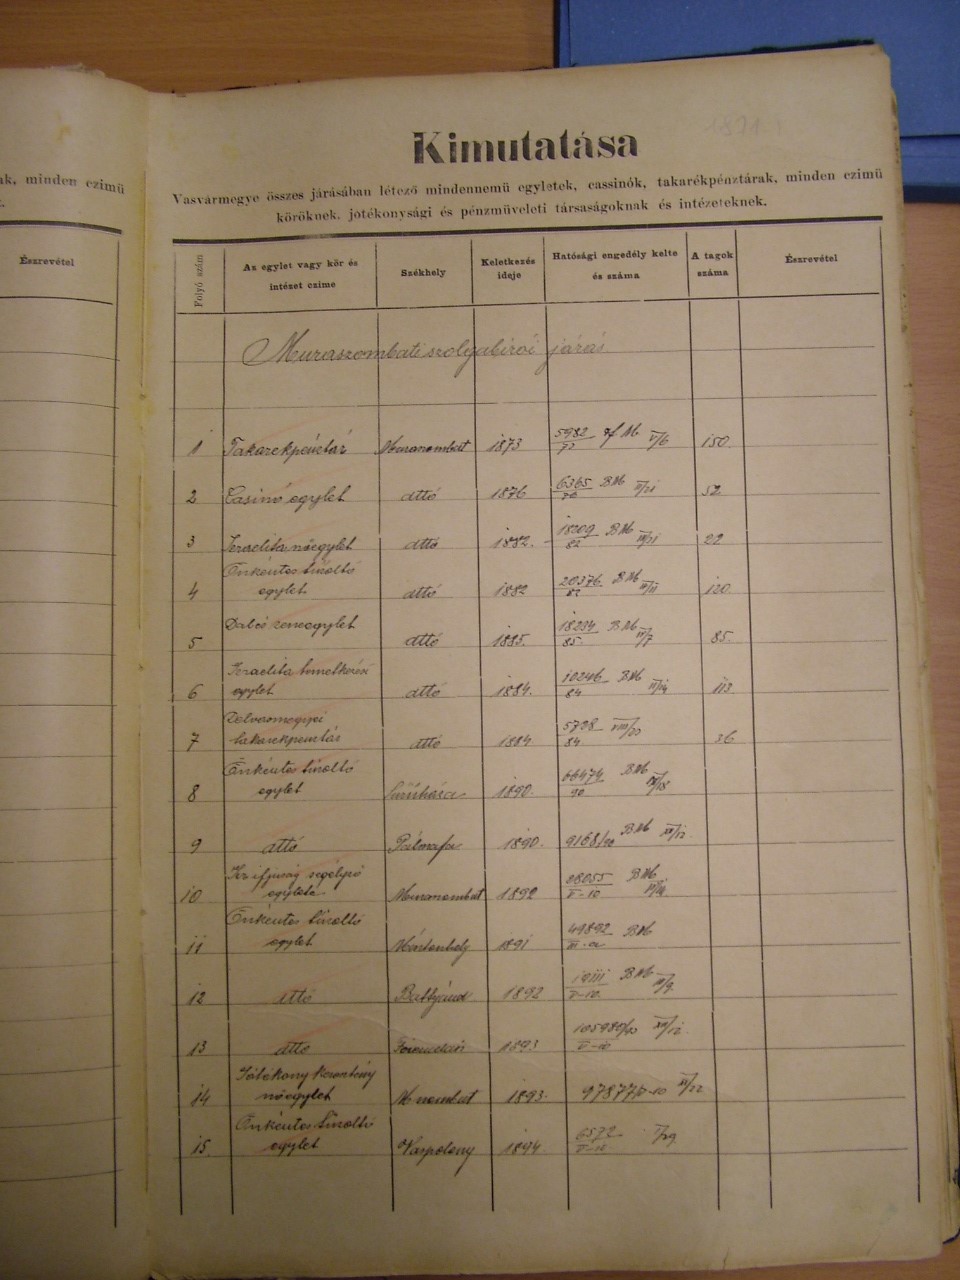 ak, minden czimü
Észrevétel
Kimutatása
Vasvármegye összes járásában létező mindennemü egyletek, cassinók, takarékpénztárak, minden czimü
köröknek, jótékonysági és pénzmüveleti társaságoknak és intézeteknek.
Folyó szám
Az egylet vagy kör és intézet czime
Székhely
Keletkezés ideje
Hatósági engedély kelte és száma
A tagok száma
Észrevétel
Muraszombati szolgabirói járás
1 Takarekpénztár Muraszombat 1873 5982 V/6 150
2 Casinó egylet attó 1876 6365 BM 52
3 Izraelita nőegylet attó 1882. 18209/82 BM 22
4 Önkéntes tüzoltó egylet attó 1882 20376/82 BM 120
5 zeneegylet attó 1885. 18234/85. BM 85.
6 Izraelita egylet attó 1884. 10246/84 BM 113
7 takarekpenztár attó 1884 5728/84 VIII/23 36
8 Önkéntes tüzoltó egylet 1890. 66474/90 BM
9 attó Pálmafa 1890. 9168/90 BM
10 Izr ifjuság segélyző egylete Muraszombat 1892 BM
11 Önkéntes tüzoltó egylet Mártonhely 1891 49892 BM
12 attó Battyánd 1892 19111/V-10. BM
13 attó 1893 105980
14 Jótékony keresztény nőegylet 1893. 97877
15. Önkéntes tüzoltó egylet Vaspolony 1894 6572